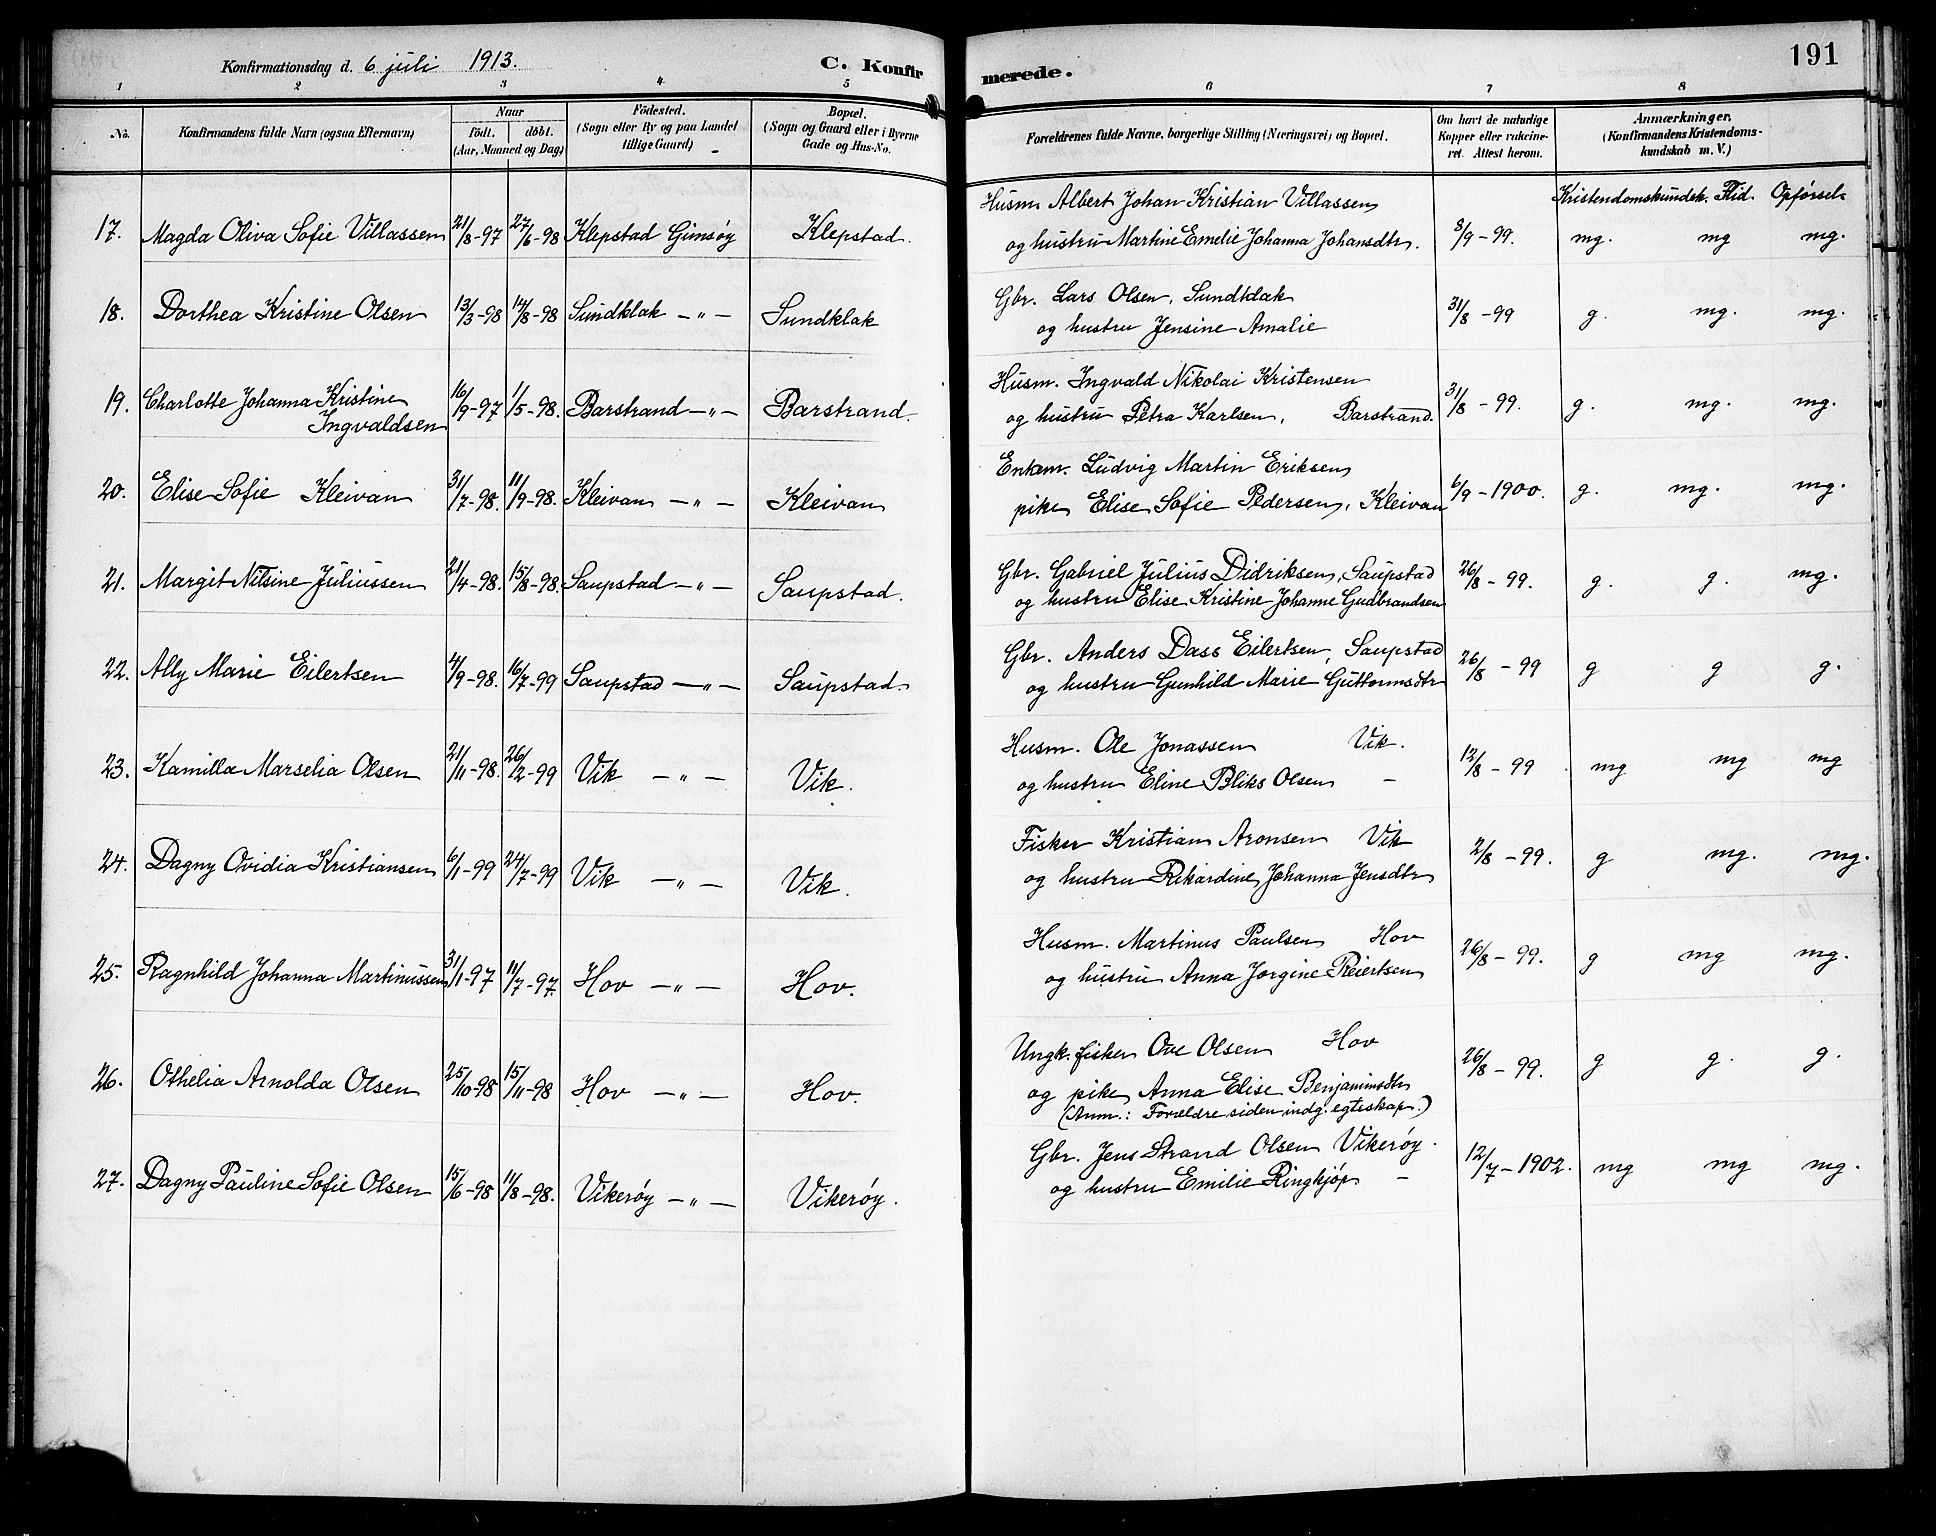 Konfirmationsdag d. 6 juli 1913.
C. Konfirmerede.
191
1 2 3 4 5 6 7 8
No.
Konfirmandens fulde Navn (ogsaa Efternavn)
Naar
Födt. döbt.
(Aar, Maaned og Dag)
Födested.
(Sogn eller By og paa Landet
tillige Gaard)
Bopæl.
(Sogn og Gaard eller i Byerne
Gade og Hus-No.
Forældrenes fulde Navne, borgerlige Stilling (Næringsvei) og Bopæl.
Om havt de naturlige
Kopper eller vakcine-
ret. Attest herom.
Anmærkninger.
(Konfirmandens Kristendoms-
kundskab m. V.)
Kristendomskundsk. Flid. Opförsel.
17. Magda Oliva Sofie Villassen 21/8-97 27/6-98 Klepstad Gimsøy Klepstad.
Husm. Albert Johan Kristian Villassen
og hustru Martine Emelie Johanna Johansdtr. 8/9-99. mg. mg mg.
18. Dorthea Kristine Olsen 13/3-98 14/8-98 Sundklak - " - Sundklak
Gbr. Lars Olsen, Sundklak
og hustru Jensine Amalie 31/8-99 g. mg. mg.
19. Charlotte Johanna Kristine
Ingvaldsen 16/9-97 1/5-98. Barstrand - " - Barstrand.
Husm. Ingvald Nikolai Kristensen
og hustru Petra Karlsen, Barstrand. 31/8-99. g. mg. mg.
20. Elise Sofie Kleivan 31/7-98. 11/9-98. Kleivan - " - Kleivan
Enkem. Ludvig Martin Eriksen
pike Elise Sofie Pedersen, Kleivan 6/9-1900. g. mg. mg.
21. Margit Nilsine Juliussen 21/4-98. 15/8-98. Saupstad - " - Saupstad.
Gbr. Gabriel Julius Didriksen, Saupstad
og hustru Elise Kristine Johanne Gudbrandsen 26/8-99. g. g. mg.
22. Ally Marie Eilertsen 4/9-98. 16/7-99 Saupstad - " - Saupstad.
Gbr. Anders Dass Eilertsen, Saupstad
og hustru Gunhild Marie Guttormsdtr 26/8-99 g g g.
23. Kamilla Marselia Olsen 21/11-98. 26/2-99 Vik - " - Vik.
Husm. Ole Jonassen Vik.
og hustru Eline Bliks Olsen - 12/8-99 mg mg mg
24. Dagny Ovidia Kristiansen 6/1-99 24/7-99 Vik - " - Vik.
Fisker Kristian Aronsen Vik
og hustru Rikardine Johanna Jensdtr 2/8-99. g mg. mg.
25. Ragnhild Johanna Martinussen 31/1-97 11/7-97. Hov - " - Hov.
Husm. Martinus Paulsen Hov
og hustru Anna Jorgine Reiertsen 26/8-99. g mg mg.
26. Othelia Arnolda Olsen 25/10-98 15/11-98 Hov - " - Hov.
Ungk. fisker Ove Olsen Hov
og pike Anna Elise Benjaminsdtr 26/8-99. g g. g.
(Anm.: Forældre siden indg. egteskap.)
27. Dagny Pauline Sofie Olsen 15/6-98 11/8-98. Vikerøy - " - Vikerøy.
Gbr. Jens Strand Olsen Vikerøy.
og hustru Emilie Ringkjøp - 12/7-1902. mg mg mg.